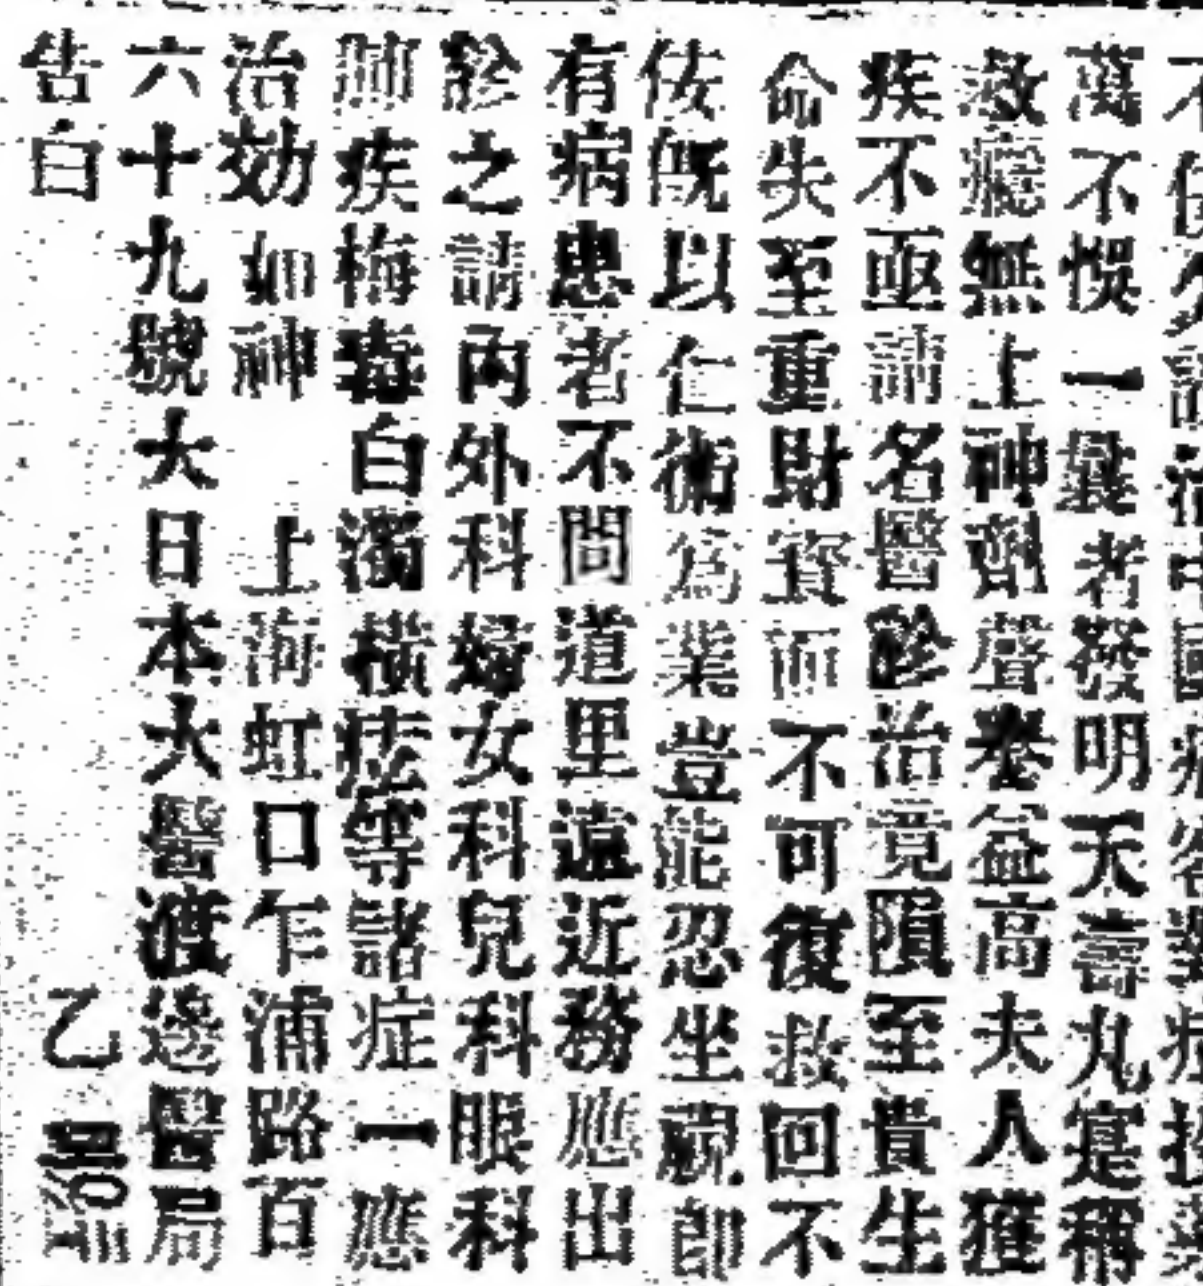 萬不悞一曩者發明天壽丸寔稱
救癮無上神劑聲譽益高夫人獲
疾不亟請名醫診治竟隕至貴生
命失至重財寳而不可復救回不
佞既以仁術為業豈能忍坐視即
有病患者不問道里遠近務應出
診之請內外科婦女科兒科眼科
肺疾梅毒白濁橫痃等諸症一應
治効如神 上海虹口乍浦路百
六十九號大日本大醫渡邊醫局
告白 乙